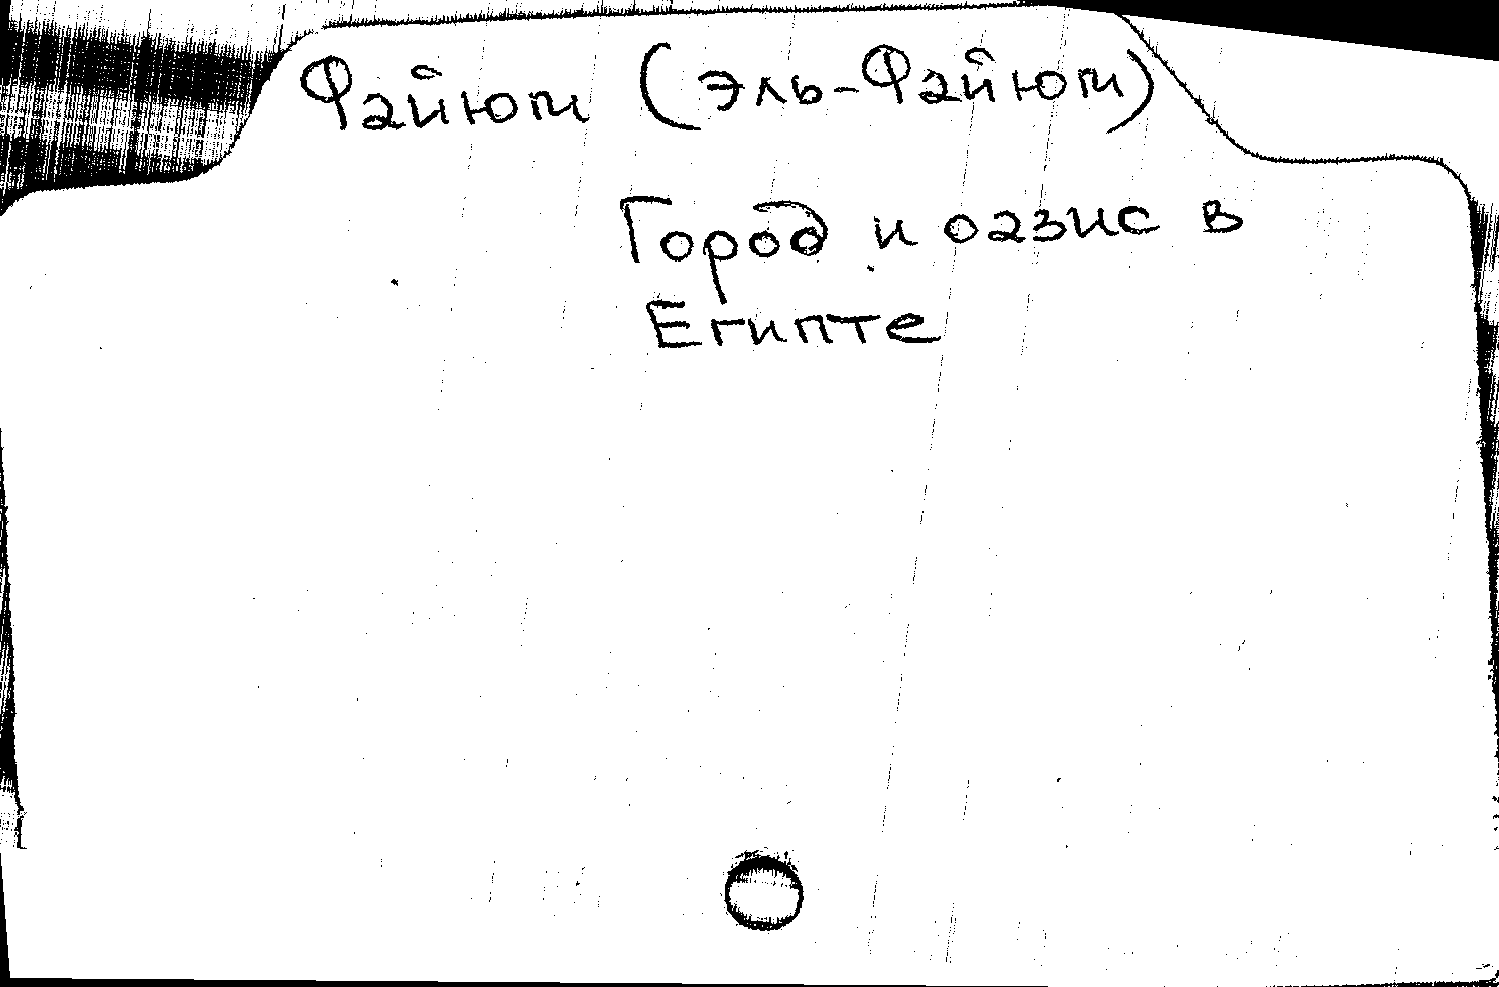 Файюм (Эль-Файюм)
Город и оазис в
Египте